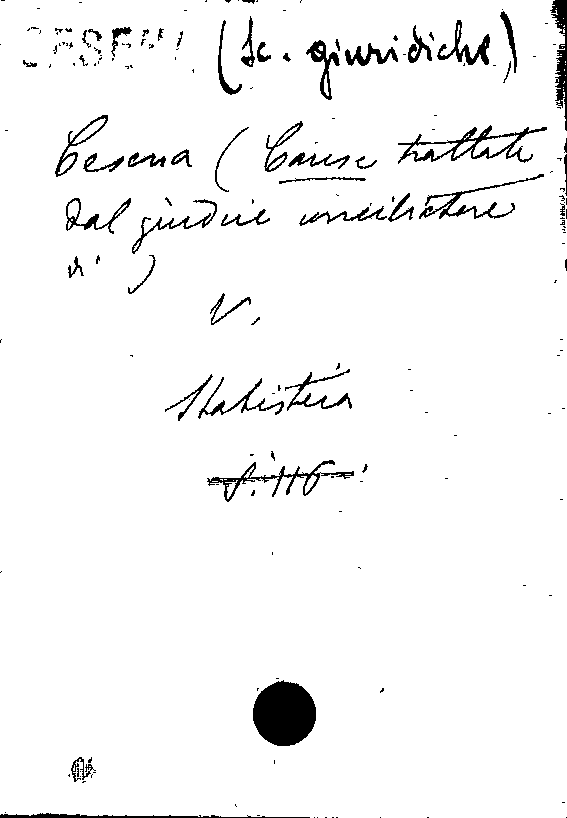 CESENA (Sc. giuridiche)
Cesena (Cause trattate
dal giudice conciliatore
di )
V.
Statistica
S. 116